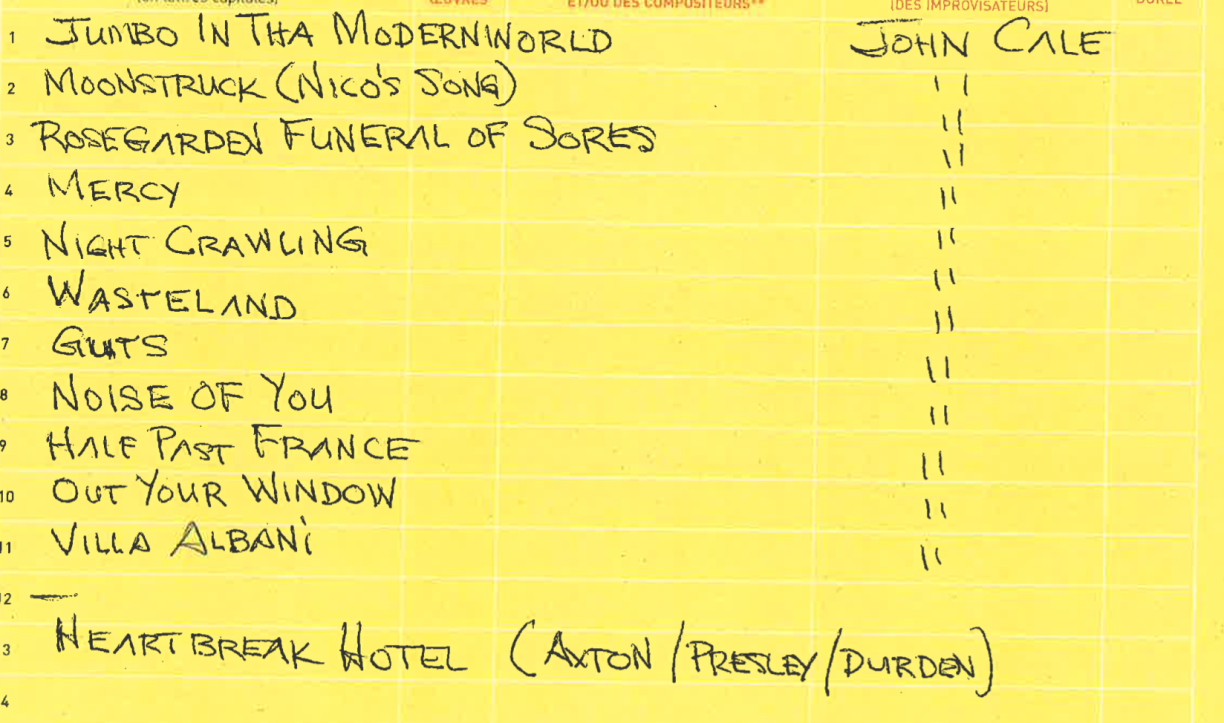 (en lettres capitales) ŒUVRES ET/OU DES COMPOSITEURS** (DES IMPROVISATEURS) DURÉE
1 JUMBO IN THA MODERNWORLD JOHN CALE
2 MOONSTRUCK (NICO'S SONG) "
3 ROSEGARDEN FUNERAL OF SORES " "
4 MERCY "
5 NIGHT CRAWLING "
6 WASTELAND " "
7 GUTS "
8 NOISE OF YOU "
9 HALF PAST FRANCE "
10 OUT YOUR WINDOW "
11 VILLA ALBANI "
12 —
3 HEARTBREAK HOTEL (AXTON/PRESLEY/DURDEN)
4